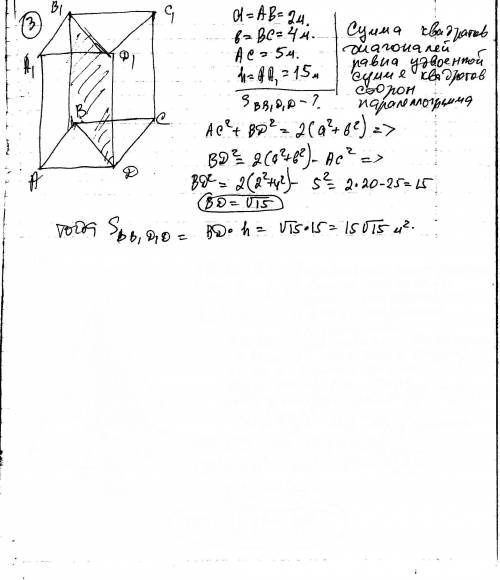 3
B₁ C₁
A₁ D₁
B C
A D
a = AB = 2м.
b = BC = 4м.
AC = 5м.
h = AA₁ = 15м
S BB₁D₁D - ?
Сумма квадратов
диагоналей
равна удвоенной
сумме квадратов
сторон
параллелограмма
AC² + BD² = 2(a² + b²) =>
BD² = 2(a² + b²) - AC² =>
BD² = 2(2² + 4²) - 5² = 2·20 - 25 = 15
BD = √15
тогда S BB₁D₁D = BD · h = √15 · 15 = 15√15 м².